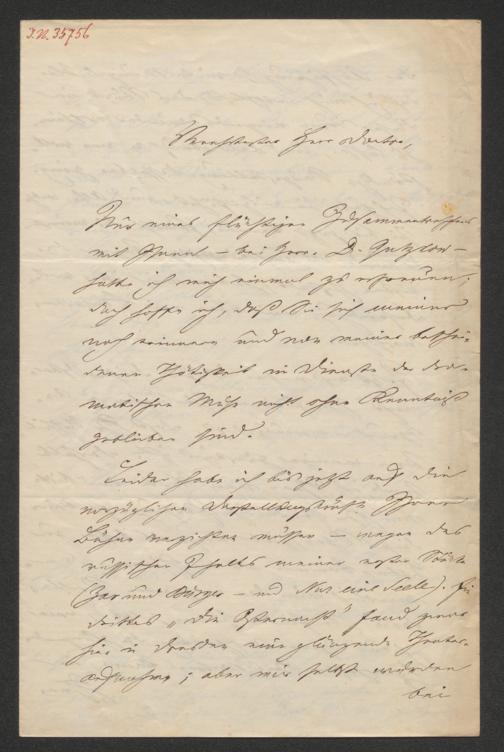 I.N. 35756
Verehrtester Herr Doctor,
Nur eines flüchtigen Zusammentreffens
mit Ihnen – bei Herrn D. Gutzkow –
hatte ich mich einmal zu erfreuen;
doch hoffe ich, daß Sie sich meiner
noch erinnern und von meiner beschei-
denen Thätigkeit im Dienste der dra-
matischen Muse nicht ohne Kenntniß
geblieben sind.
Leider habe ich bis jetzt auf die
vorzüglichen Darstellungskräfte Ihrer
Bühne verzichten müssen – wegen des
russischen Inhalts meiner ersten Stücke
(Zar und Bürger – und Nur eine Seele). Ein
drittes „Die Osternacht" fand zwar
hier in Dresden eine glänzende Theater-
aufnahme; aber mir selbst wurden
bei